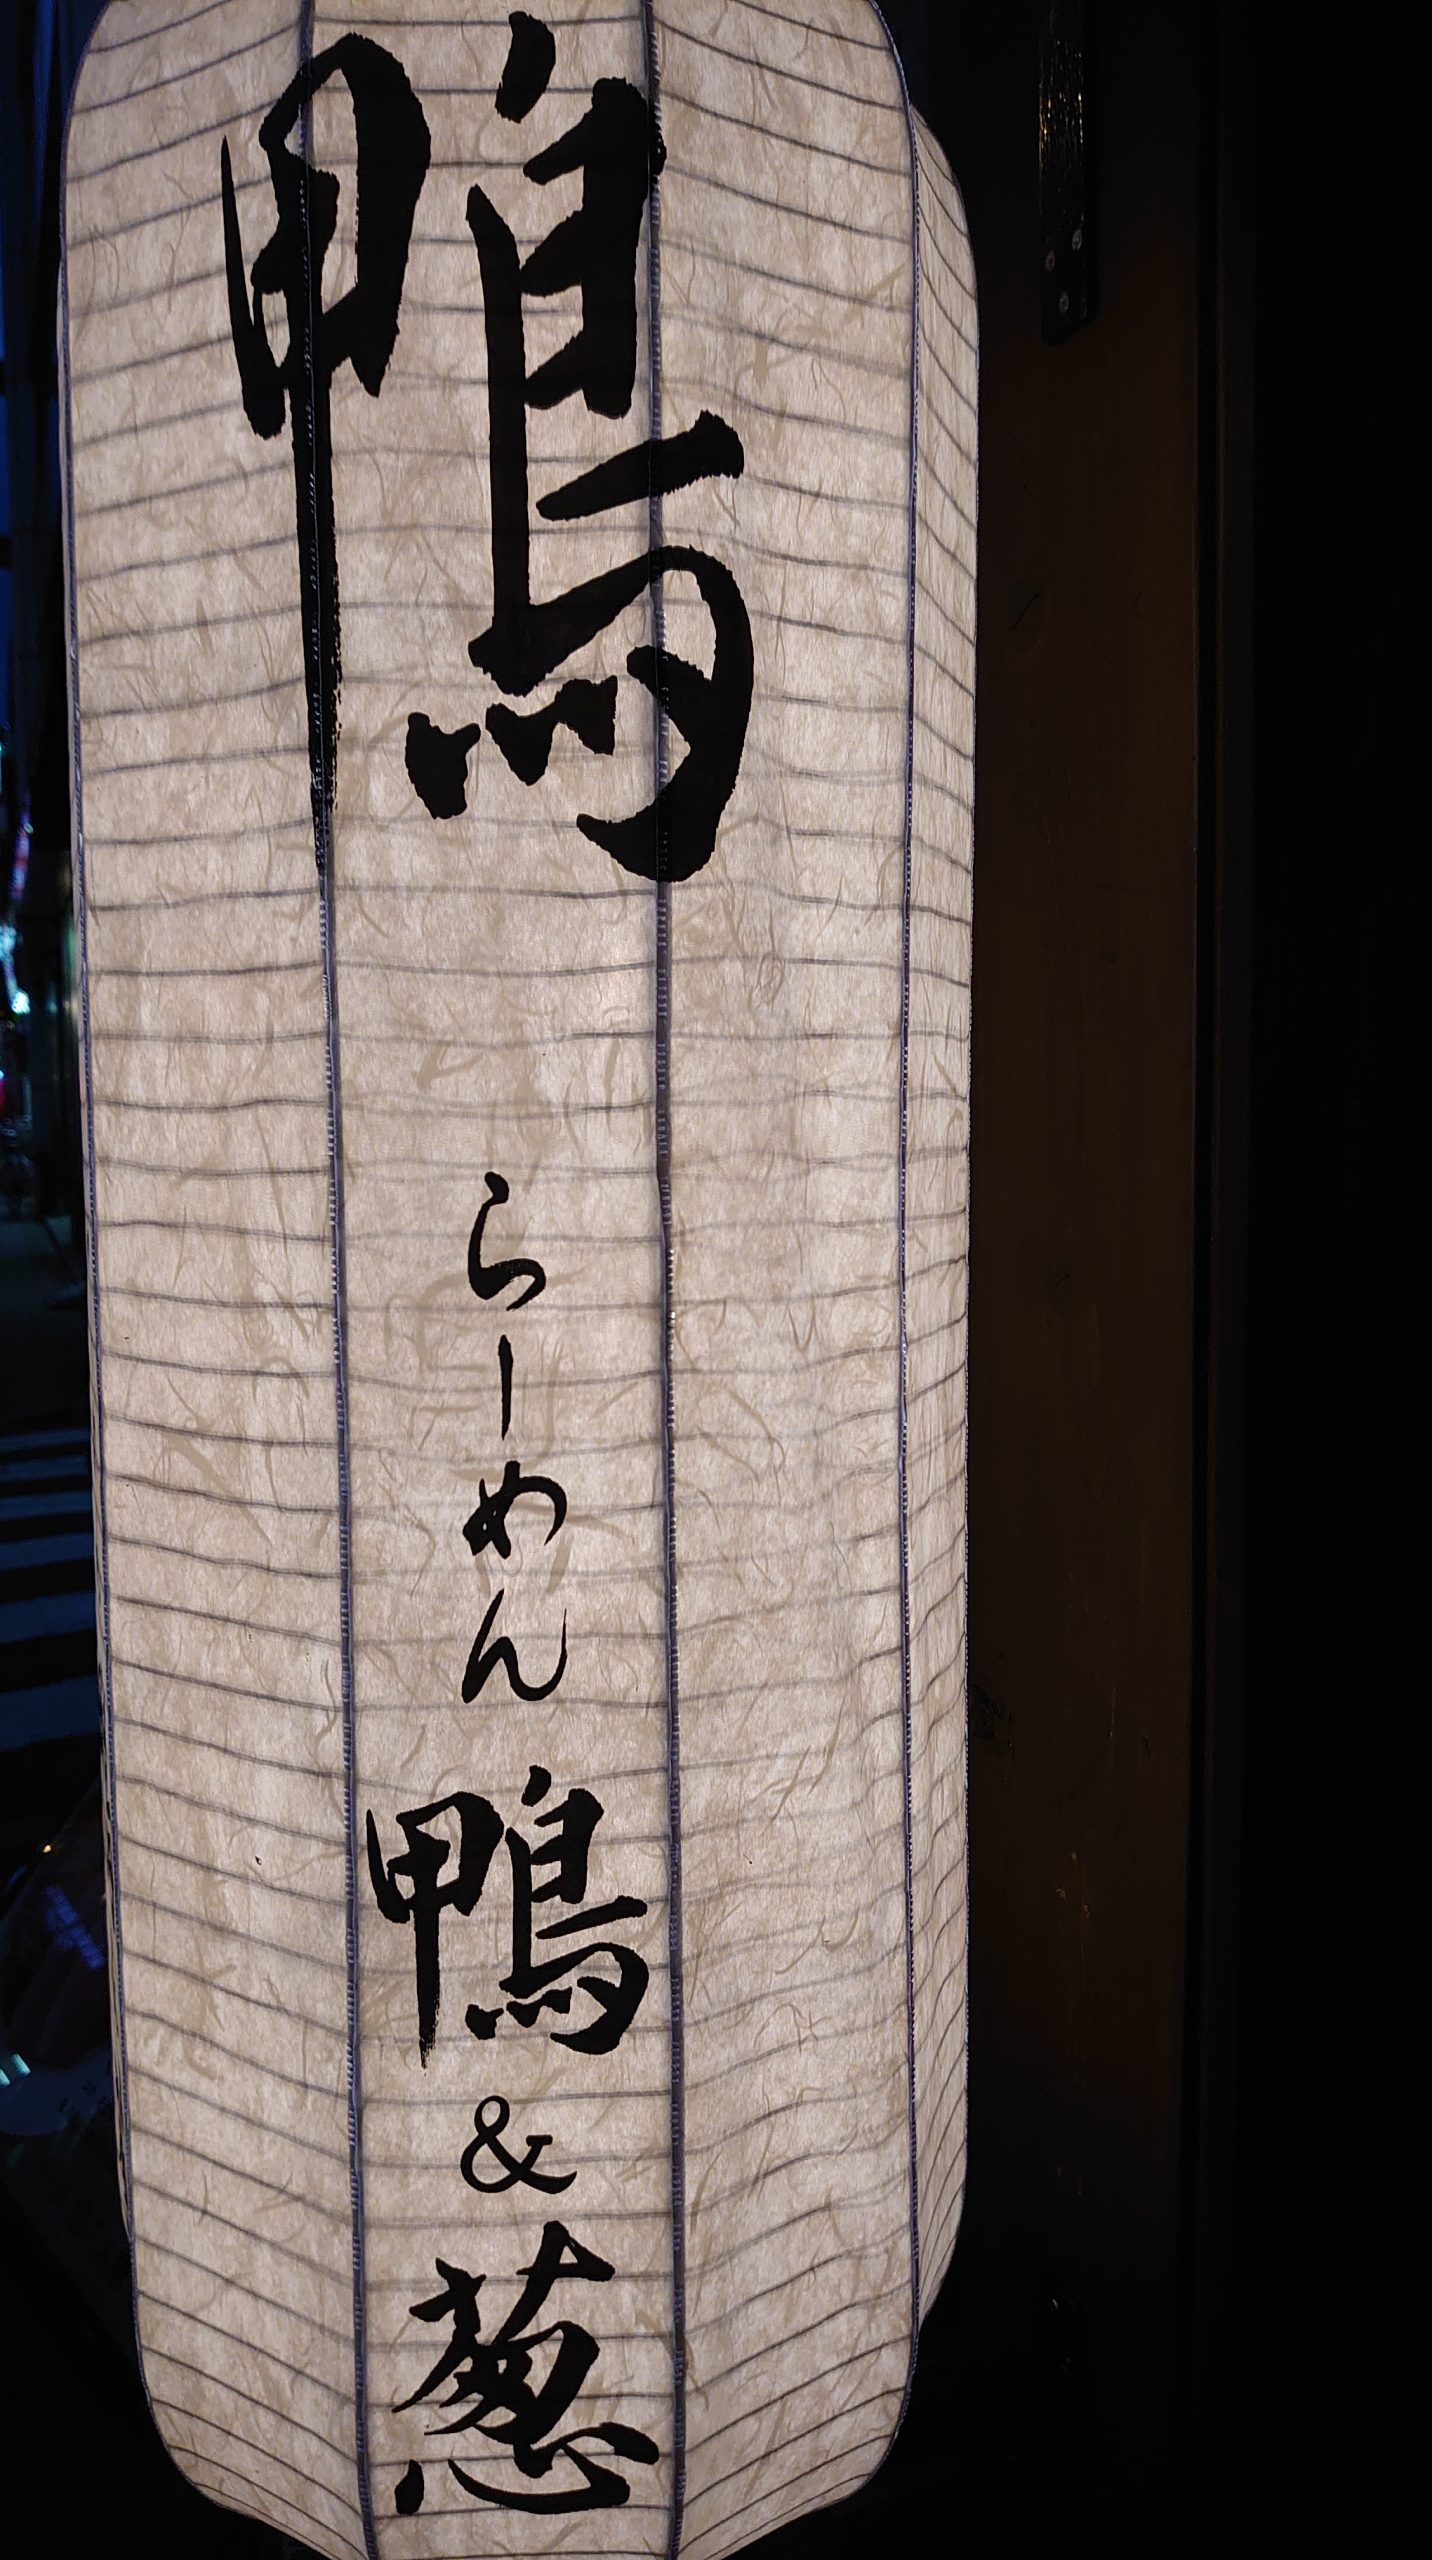 鴨
らーめん鴨&葱